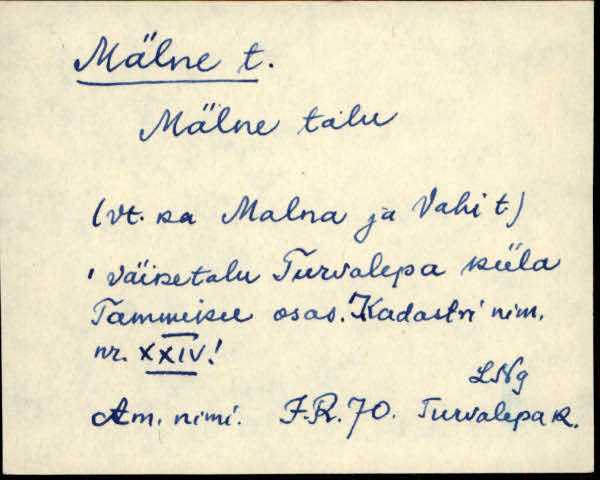 Mälne t.
Mälne talu
(vt. ka Malna ja Vahi t.)
' väiketalu Turvalepa küla
Tammiku osas. Kadastri nim.
nr. XXIV!
LNg
Am. nimi. F.R. 70. Turvalepa k.